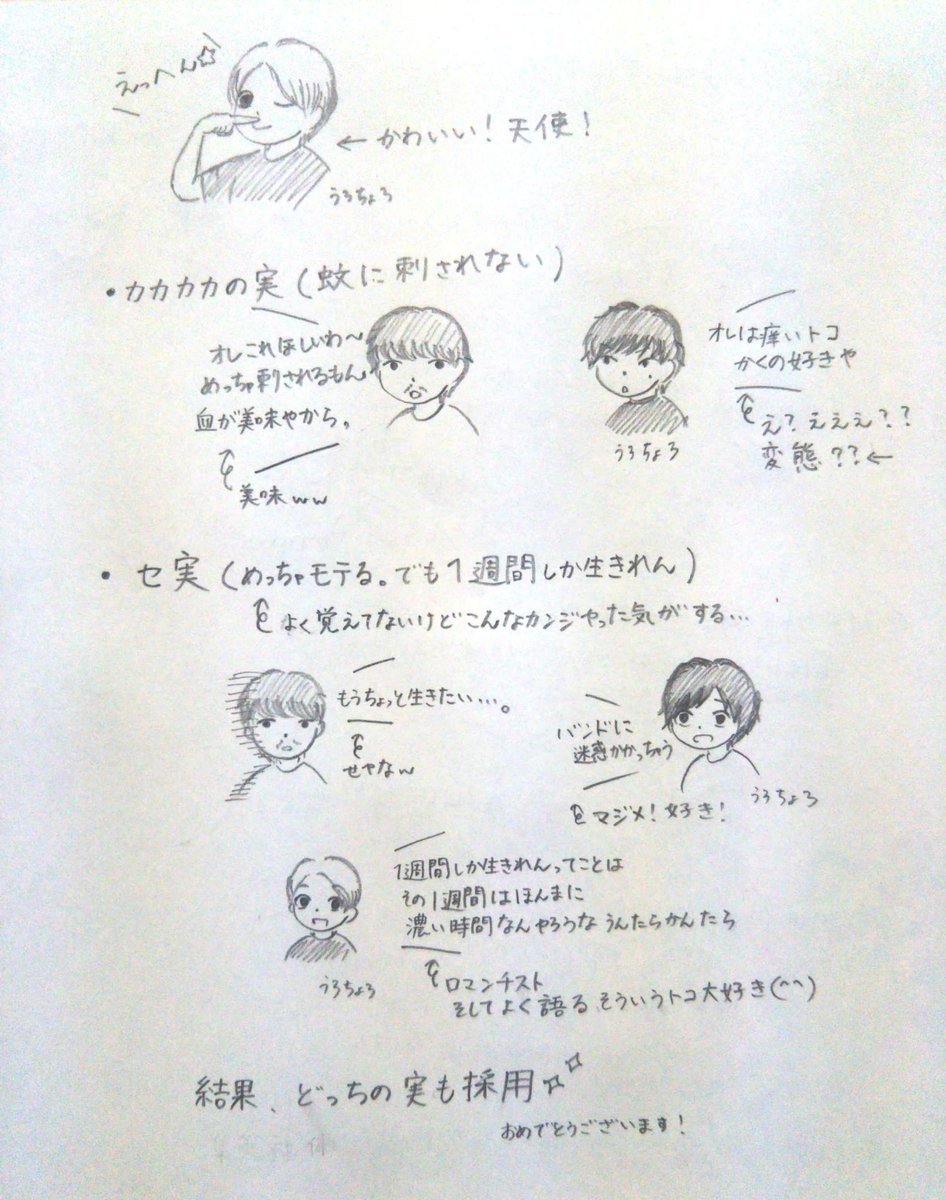 えっへん☆
← かわいい! 天使!
うろちょろ
・カカカカの実 (蚊に刺されない)
オレこれほしいわ〜
めっちゃ刺されるもん
血が美味やから。
美味ww
うろちょろ
オレは痒いトコ
かくの好きや
え? えええ??
変態??←
・セ実 (めっちゃモテる。でも1週間しか生きれん)
よく覚えてないけどこんなカンジやった気がする…
もうちょっと生きたい…。
せやなw
バンドに
迷惑かかっちゃう
うろちょろ
マジメ! 好き!
1週間しか生きれんってことは
その1週間はほんまに
濃い時間なんやろうな うんたらかんたら
うろちょろ
ロマンチスト
そしてよく語る、そういうトコ大好き(^^)
結果、どっちの実も採用
おめでとうございます!